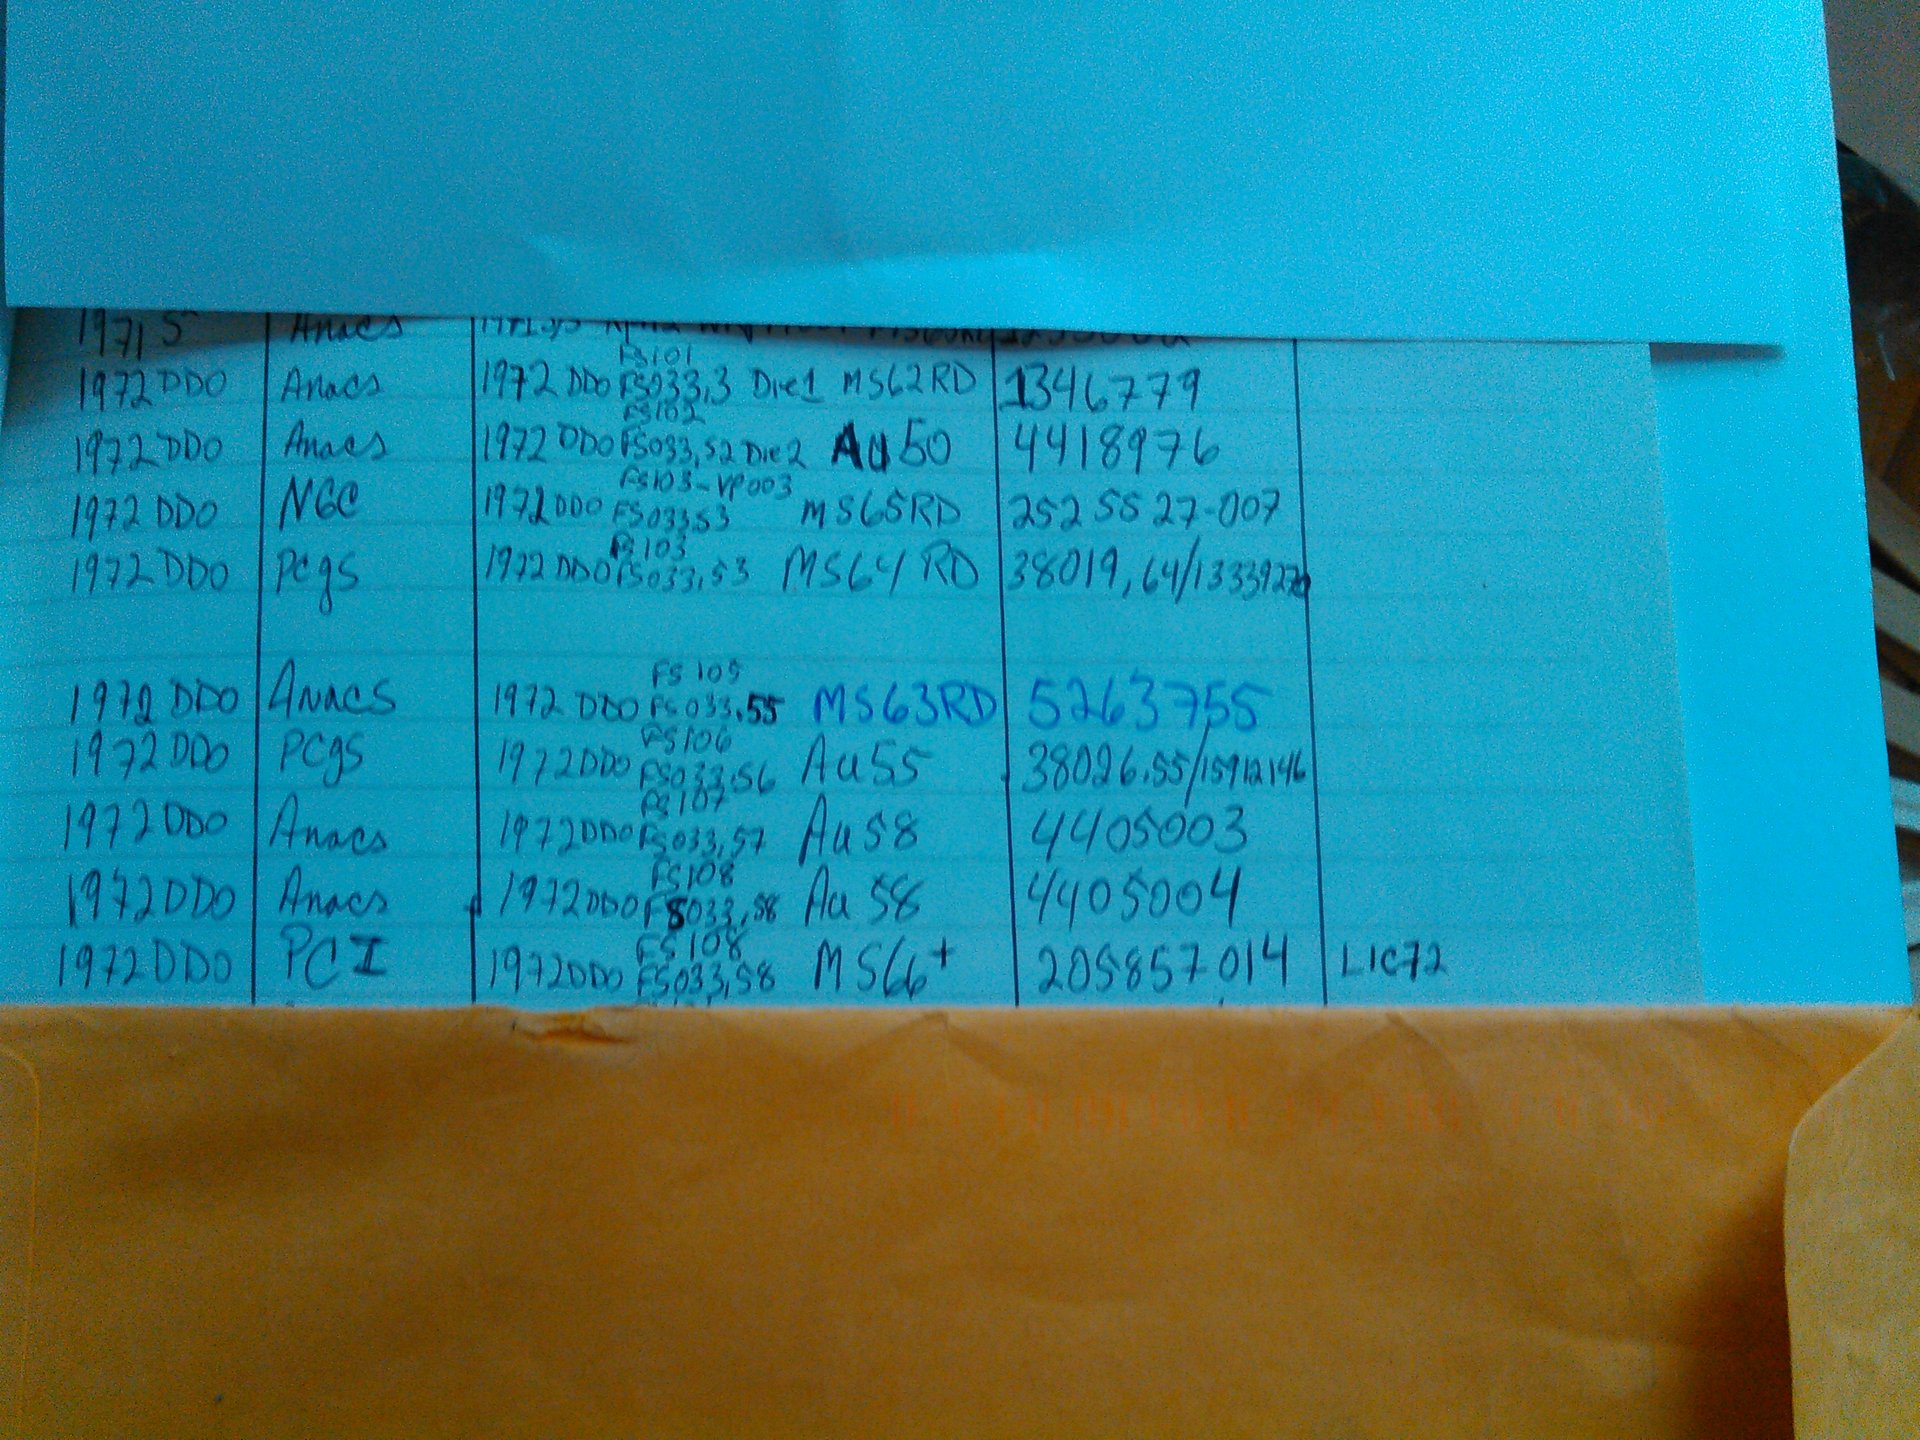 1971 S Anacs
FS101
1972 DDO Anacs 1972 DDO FS033,3 Die1 MS62RD 1346779
FS102
1972 DDO Anacs 1972 DDO FS033,52 Die2 Au50 4418976
FS103-VP003
1972 DDO NGC 1972 DDO FS033,53 MS65RD 2525527-007
FS103
1972 DDO Pcgs 1972 DDO FS033,53 MS64 RD 38019,64/13339270
FS 105
1972 DDO Anacs 1972 DDO FS033.55 MS63RD 5263755
FS106
1972 DDO PCgs 1972DDO FS033,56 Au55 38026.55/15912146
FS107
1972 DDO Anacs 1972DDO FS033,57 Au58 4405003
FS108
1972DDO Anacs 1972DDO FS033,58 Au 58 4405004
FS108
1972DDO PCI 1972DDO FS033,58 MS66+ 205857014 L1C72